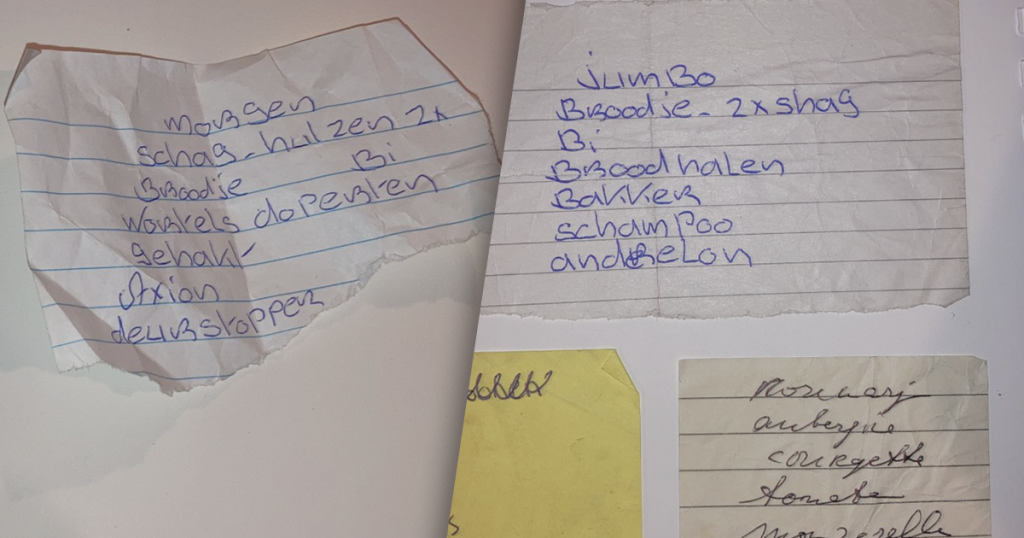 morgen
schag-hulzen 2x
Broodje Bi
workels doperken
gehakt
Axion
deurstopper
jumBo
Broodje- 2x shag
Bi
Broodhalen
Bakker
schampoo
andrelon
Rosemarj
aubergine
courgette
tomate